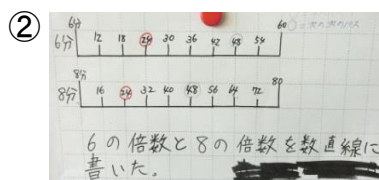 ②
6分
6分 12 18 24 30 36 42 48 54 60
8分
8分 16 24 32 40 48 56 64 72 80
6の倍数と8の倍数を数直線に
書いた。